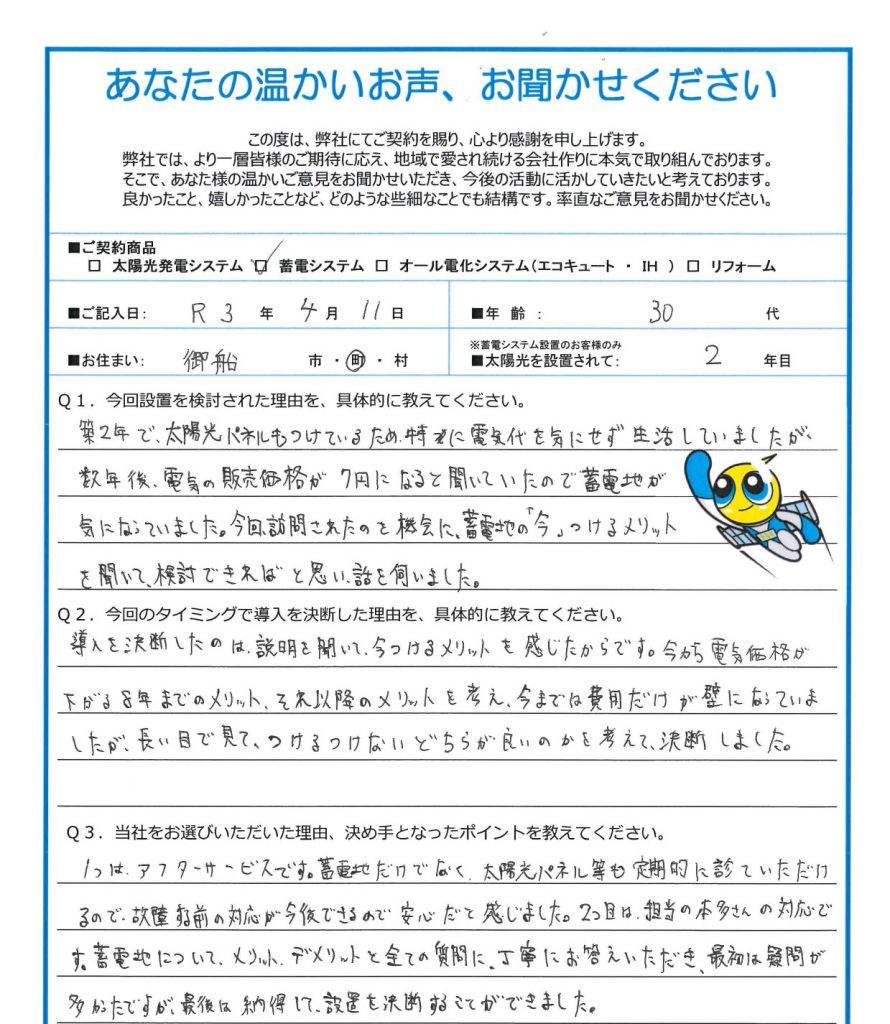 あなたの温かいお声、お聞かせください
この度は、弊社にてご契約を賜り、心より感謝を申し上げます。
弊社では、より一層皆様のご期待に応え、地域で愛され続ける会社作りに本気で取り組んでおります。
そこで、あなた様の温かいご意見をお聞かせいただき、今後の活動に活かしていきたいと考えております。
良かったこと、嬉しかったことなど、どのような些細なことでも結構です。率直なご意見をお聞かせください。
■ご契約商品
□ 太陽光発電システム ☑ 蓄電システム □ オール電化システム（エコキュート ・ IH ） □ リフォーム
■ご記入日： R3 年 4 月 11 日 ■年 齢 ： 30 代
■お住まい： 御船 市 ・ 町 ・ 村 ※蓄電システム設置のお客様のみ
■太陽光を設置されて： 2 年目
Q１．今回設置を検討された理由を、具体的に教えてください。
築2年で、太陽光パネルもつけているため、特に電気代を気にせず生活していましたが、
数年後、電気の販売価格が7円になると聞いていたので蓄電池が
気になっていました。今回、訪問されたのを機会に、蓄電池の「今」つけるメリット
を聞いて、検討できればと思い、話を伺いました。
Q２．今回のタイミングで導入を決断した理由を、具体的に教えてください。
導入を決断したのは、説明を聞いて、今つけるメリットを感じたからです。今から電気価格が
下がる8年までのメリット、それ以降のメリットを考え、今までは費用だけが壁になっていま
したが、長い目で見て、つけるつけないどちらが良いのかを考えて、決断しました。
Q３．当社をお選びいただいた理由、決め手となったポイントを教えてください。
1つは、アフターサービスです。蓄電池だけでなく、太陽光パネル等も定期的に診ていただけ
るので、故障する前の対応が今後できるので安心だと感じました。2つ目は、担当の本多さんの対応で
す。蓄電池について、メリット、デメリットと全ての質問に、丁寧にお答えいただき、最初は疑問が
多かったですが、最後は納得して、設置を決断することができました。